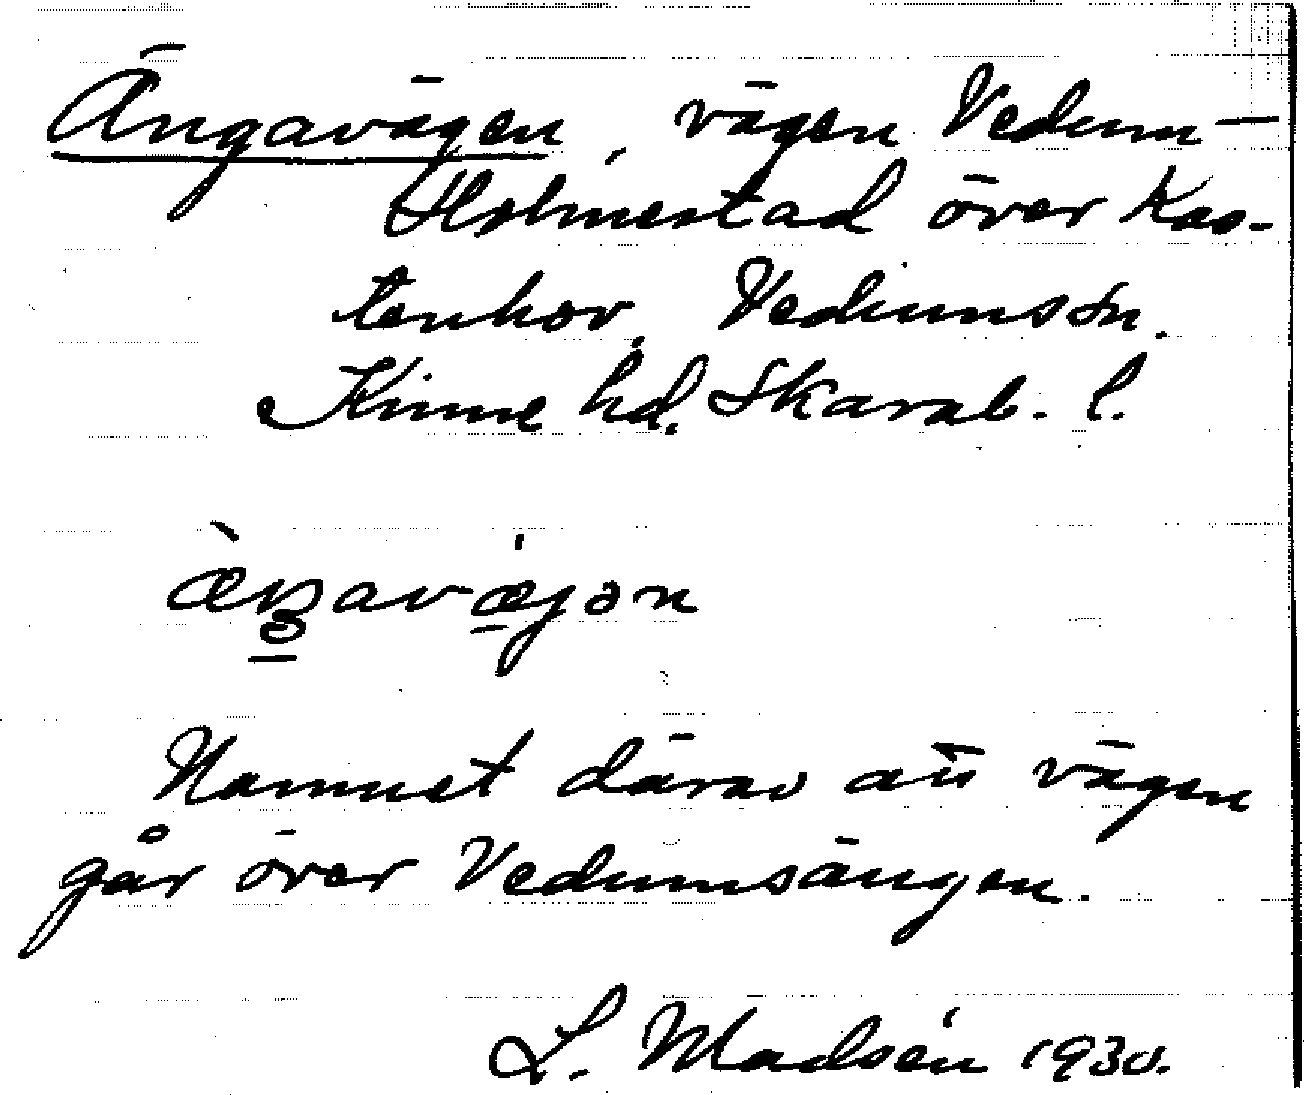 Ängavägen, vägen Vedum–
Holmestad över Kas-
tenhov, Vedums sn.
Kinne hd. Skarab. l.
æ̀ŋavæ̩jən
Namnet därav att vägen
går över Vedumsängen.
L. Madsén 1930.